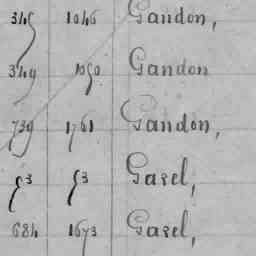 345 1046 Gandon,
349 1050 Gandon
739 1761 Gandon,
53 53 Gasel,
684 1673 Gasel,